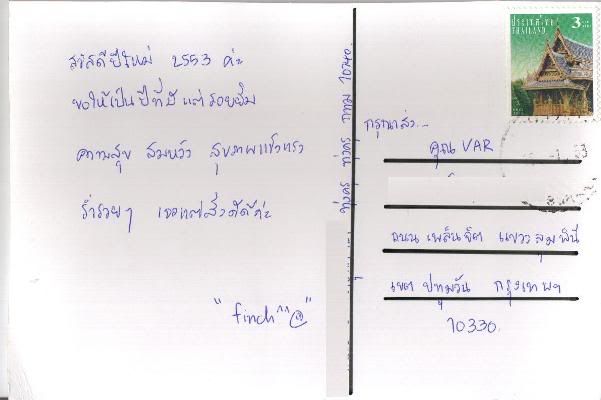 สวัสดีปีใหม่ 2553 ค่ะ
ขอให้เป็นปีที่มีแต่รอยยิ้ม
ความสุข สมหวัง สุขภาพแข็งแรง
ร่ำรวยๆ เจอแต่สิ่งดีดีค่ะ
"finch^^@"
ทุ่งครุ ทุ่งครุ กทม 10140.
ประเทศไทย 3
THAILAND
กรุณาส่ง...
คุณ VAR
ถนน เพลินจิต แขวง ลุมพินี
เขต ปทุมวัน กรุงเทพฯ
10330.